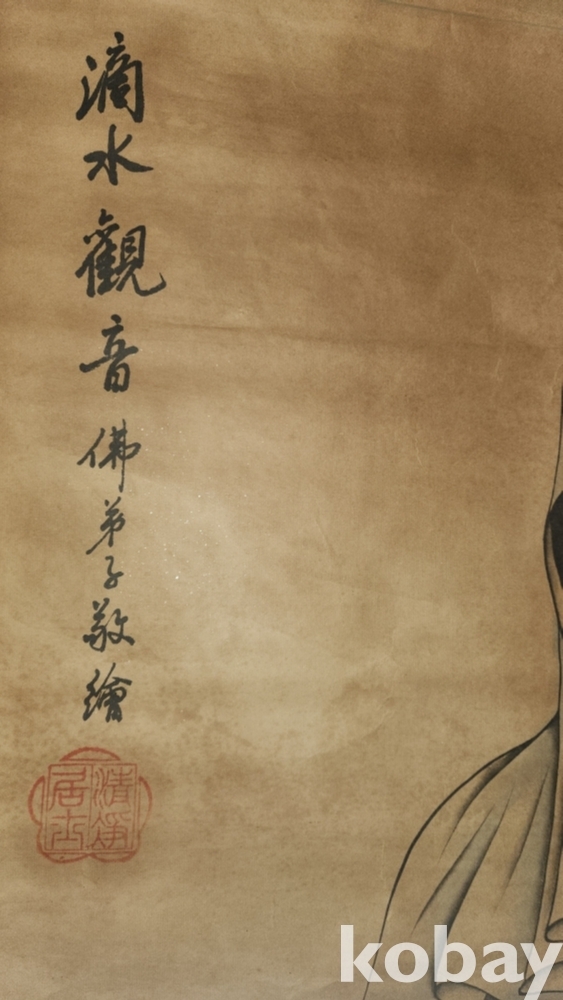 滴水觀音佛弟子敬繪
清淨居士
kobay